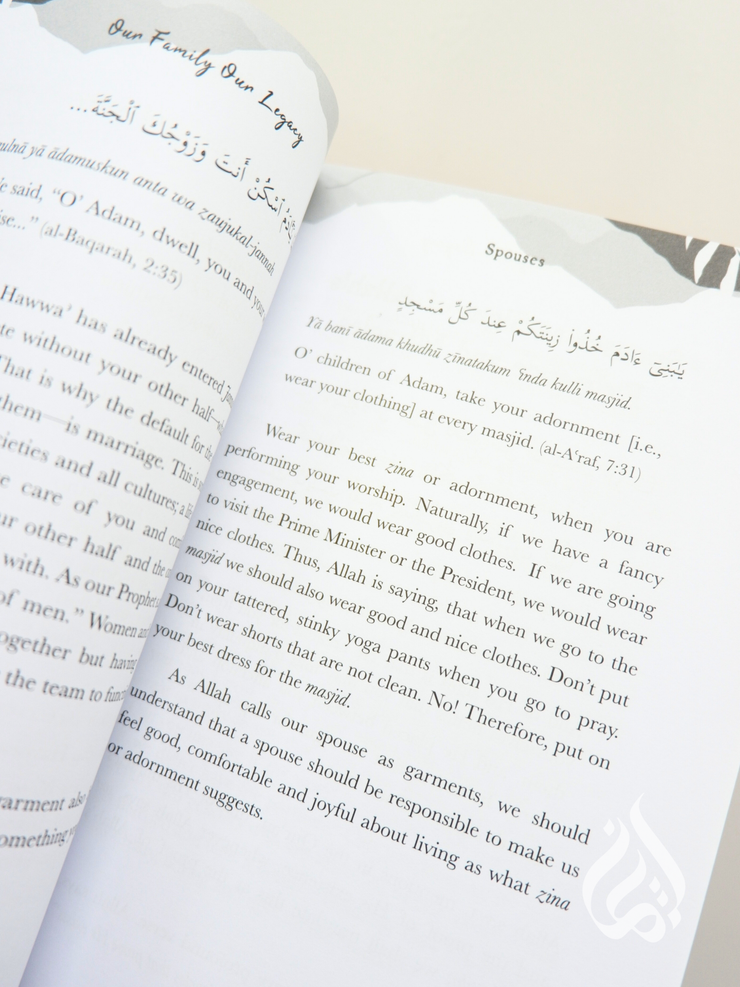 Our Family Our Legacy
ٱسْكُنْ أَنتَ وَزَوْجُكَ ٱلْجَنَّةَ...
yā ādamuskun anta wa zaujukal-jannah
said, "O' Adam, dwell, you and your
(al-Baqarah, 2:35)
Hawwa' has already entered
without your other half
That is why the default for the
them—is marriage. This is
and all cultures; a
care of you and
other half and the
with. As our Prophet
of men." Women
together but having
the team to
Spouses
يَٰبَنِىٓ ءَادَمَ خُذُوا۟ زِينَتَكُمْ عِندَ كُلِّ مَسْجِدٍ
Yā banī ādama khudhū zīnatakum ʿinda kulli masjid.
O' children of Adam, take your adornment [i.e.,
wear your clothing] at every masjid. (al-Aʿraf, 7:31)
Wear your best zina or adornment, when you are
performing your worship. Naturally, if we have a fancy
engagement, we would wear good clothes. If we are going
to visit the Prime Minister or the President, we would wear
nice clothes. Thus, Allah is saying, that when we go to the
masjid we should also wear good and nice clothes. Don't put
on your tattered, stinky yoga pants when you go to pray.
Don't wear shorts that are not clean. No! Therefore, put on
your best dress for the masjid.
As Allah calls our spouse as garments, we should
understand that a spouse should be responsible to make us
feel good, comfortable and joyful about living as what zina
or adornment suggests.